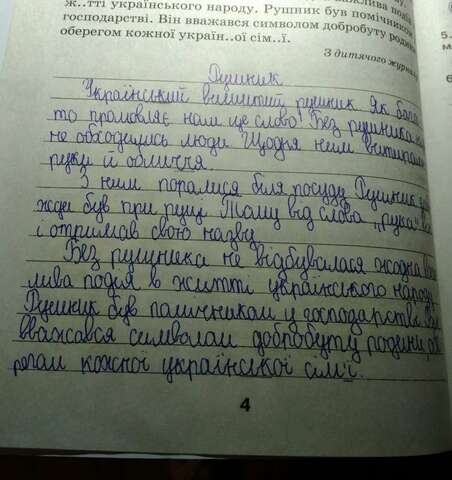 ж..тті українського народу. Рушник був помічником
господарстві. Він вважався символом добробуту родини
оберегом кожної україн..ої сім..ї.
З дитячого журна
5.
м
6
Рушник
Український вишитий рушник Як бага
то промовляє нам це слово! Без рушника
не обходились люди Щодня ним витирали
руки й обличчя.
З ним поралися біля посуду Рушник
жди був при руці. Тому від слова „рука"
і отримав свою назву
Без рушника не відбувалася жодна
лива подія в житті українського народу
Рушник був помічником у господарстві Він
вважався символом добробуту родини об
регом кожної української сім'ї.
4